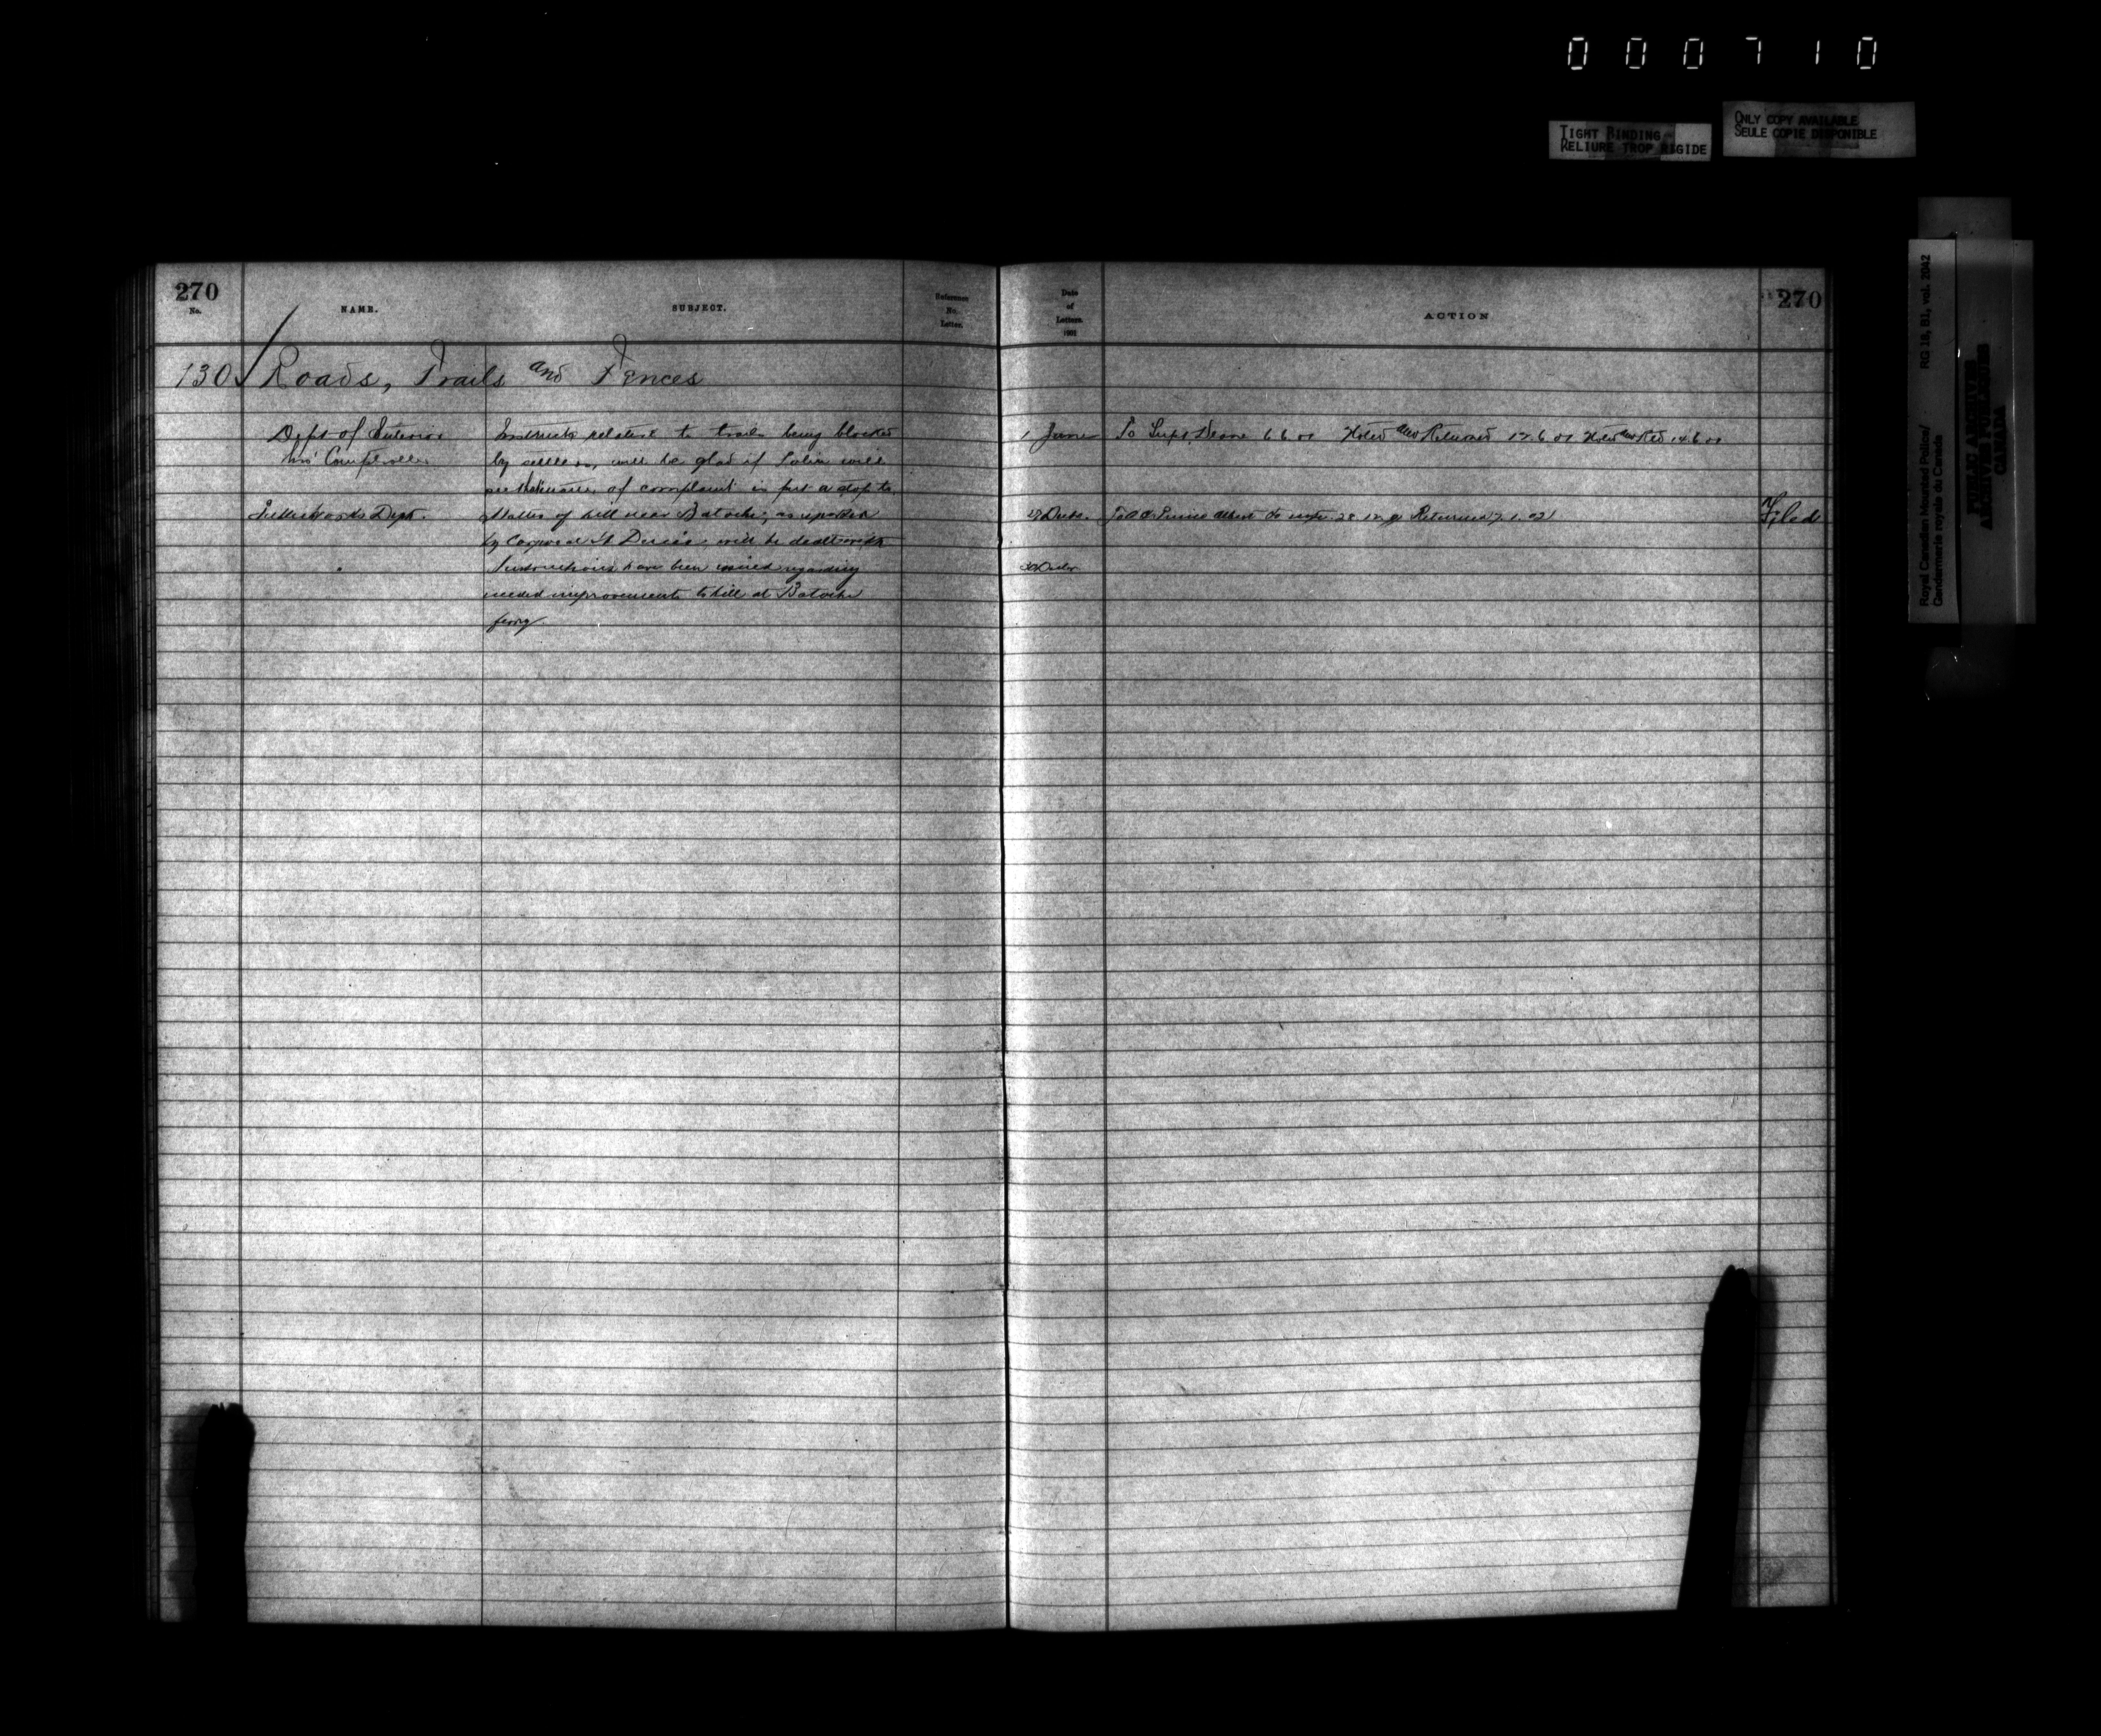 000710
TIGHT BINDING
RELIURE TROP RIGIDE
ONLY COPY AVAILABLE
SEULE COPIE DISPONIBLE
Royal Canadian Mounted Police/
Gendarmerie royale du Canada
RG 18, B1, vol. 2042
PUBLIC ARCHIVES
ARCHIVES PUBLIQUES
CANADA
270
No.
NAME.
SUBJECT.
Reference
No.
Letter.
Date
of
Letters.
1901
ACTION
270
130 Roads, Trails and Fences
Dept of Interior
Comptroller
Instructs relative to trails being blocked
by settlers, will be glad if Police will
of complaint put a stop to
1 June
To Supt Deane 6 6 01 Noted and Returned 12.6.01 Noted and Retd 14.6.01
Public Works Dept.
Matter of hill near Batoche, as reported
by Corporal St Denis, will be dealt with
27 Decbr.
Prince Albert to note 28.12.01 Returned 7.1.02
Filed
Instructions have been issued regarding
needed improvements to hill at Batoche
ferry
30 Decbr